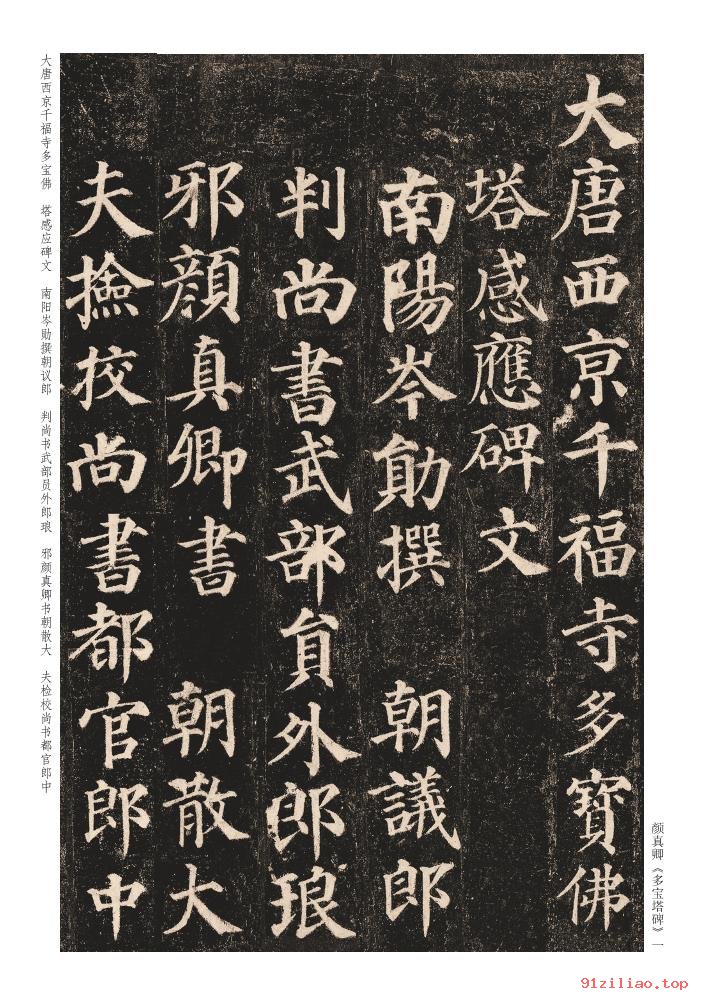 大唐西京千福寺多寶佛
塔感應碑文
南陽岑勛撰 朝議郎
判尚書武部員外郎琅
邪顏真卿書 朝散大
夫撿校尚書都官郎中
大唐西京千福寺多宝佛 塔感应碑文 南阳岑勋撰朝议郎 判尚书武部员外郎琅 邪颜真卿书朝散大 夫检校尚书都官郎中
颜真卿《多宝塔碑》一
91ziliao.top